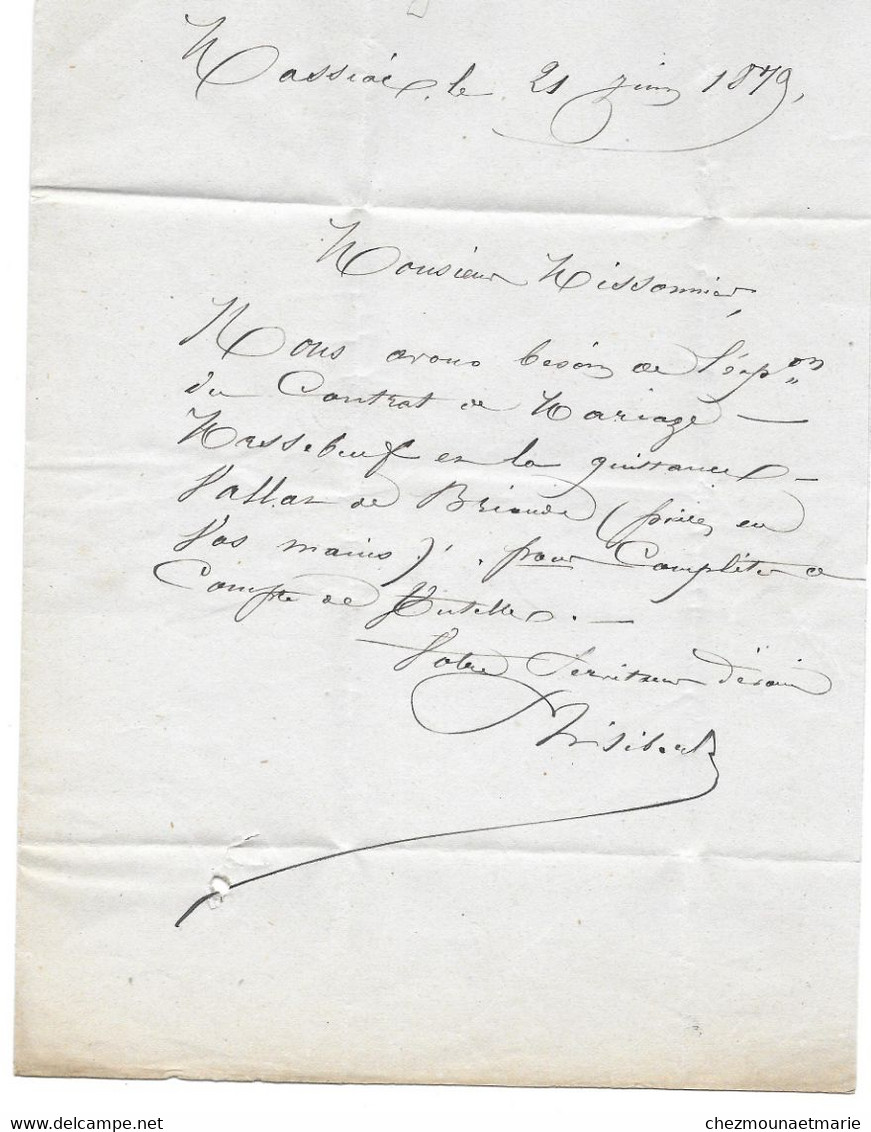 Massiac, le 21 juin 1879,
Monsieur Missonnier,
Nous avons besoin de l'exp.on
du Contrat de Mariage —
en la quittance —
Vallat de Brioude (prise en
Vos mains). pour Compléter ce
Compte de tutelle. —
Votre Serviteur dévoué
chezmounaetmarie